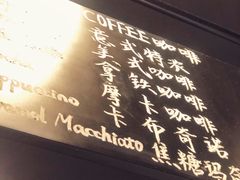 COFFEE 咖啡
意式特浓
美式咖啡
拿铁咖啡
摩卡咖啡
ppuccino 卡布奇诺
amel Macchiato 焦糖玛奇